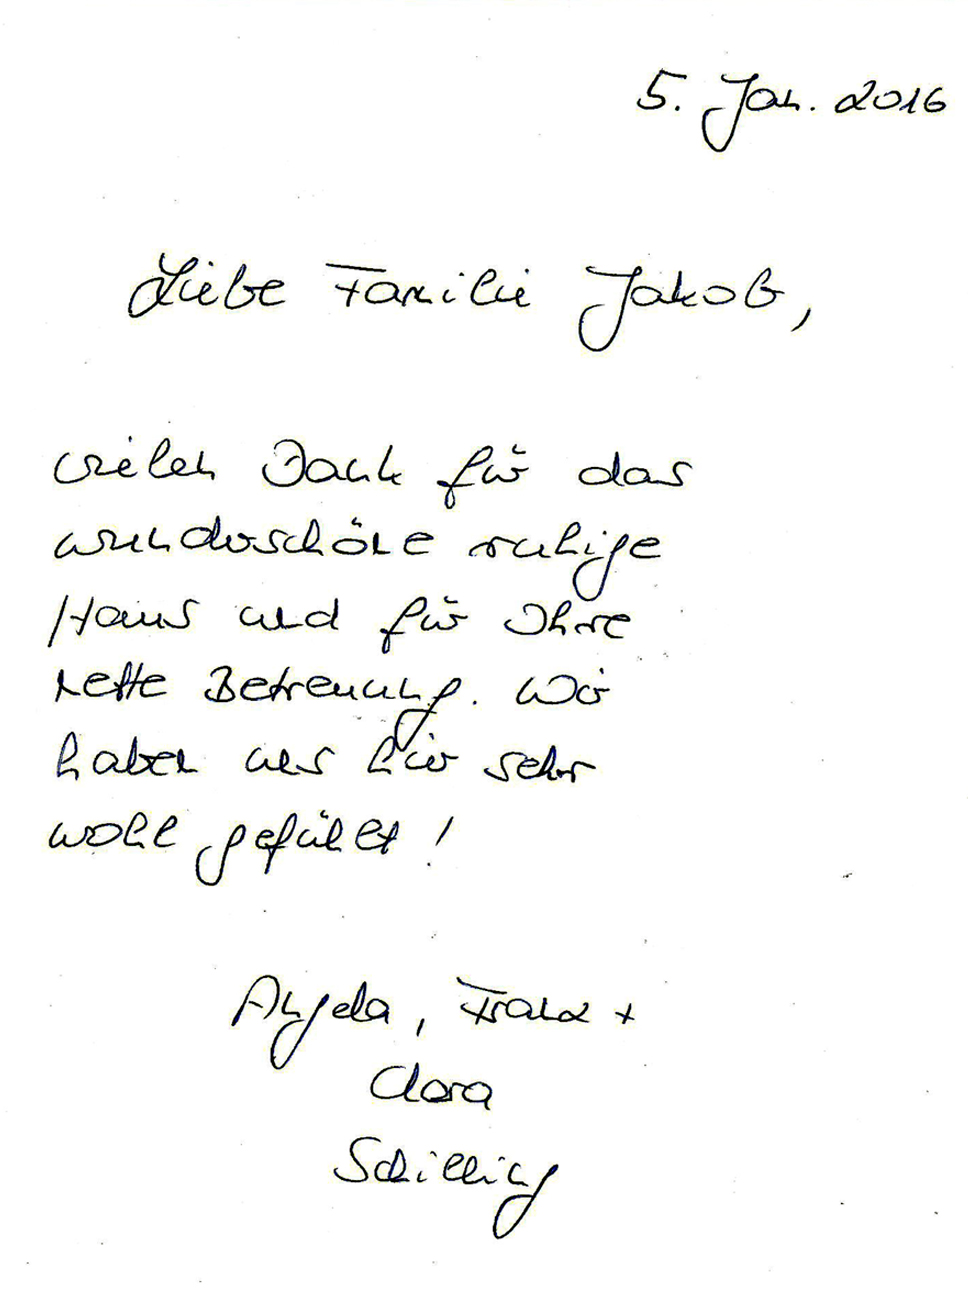 5. Jan. 2016
Liebe Familie Jakob,
vielen Dank für das
wunderschöne ruhige
Haus und für Ihre
nette Betreuung. Wir
haben uns hier sehr
wohl gefühlt!
Angela, Franz +
Clara
Schilling